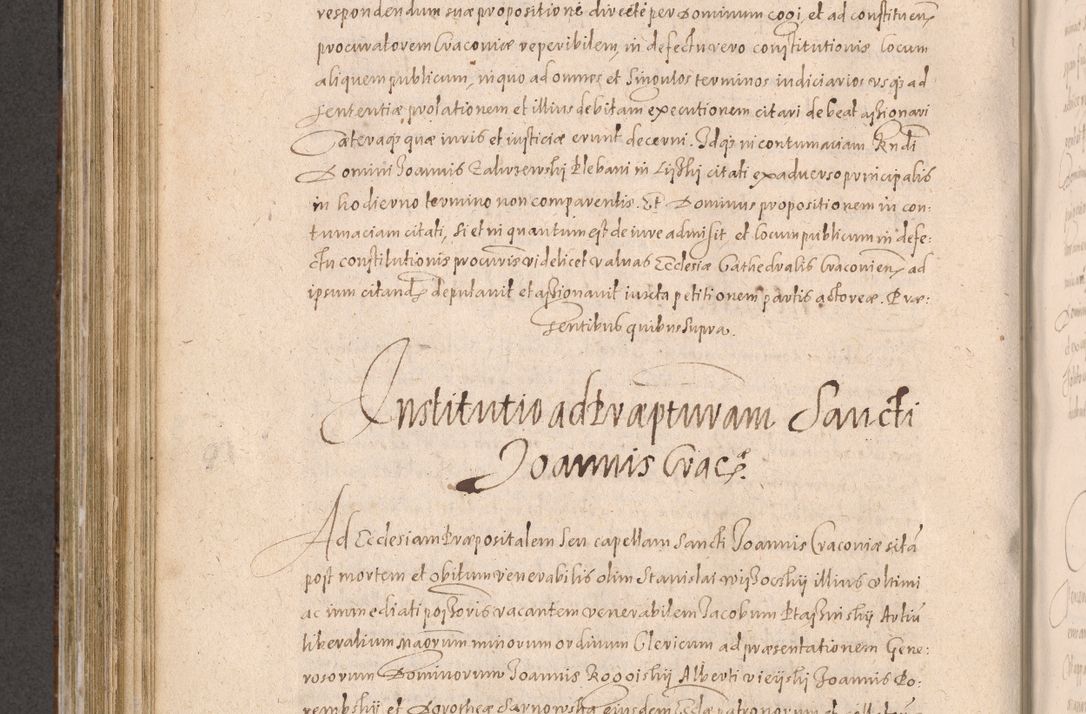 respondendum suæ propositioni directe per Dominum cogi, et ad constituen
procuratorem Cracoviæ reperibilem, in defectu vero constitutionis locum
aliquem publicum, in quo ad omnes et singulos terminos iudiciarios vsq3 ad
sententiæ prolationem et illius debitam executionem citari debeat assignari
Cæteraq3 quæ iuris et iusticiæ erunt decerni. Idq3 in contumaciam Rndi
Domini Joannis Zakrzewskij Plebani in citati ex adverso principalis
in hodierno termino non comparentis. Et Dominus propositionem in con:
tumaciam citati, si et in quantum est de iure admisit, et locum publicum in defe:
ctu constitutionis procuris videlicet valvas Ecclesiæ Cathedralis Cracovien, ad
ipsum citand deputavit et assignavit iuxta petitionem partis actoreæ. Præ:
sentibus quibus supra.
Institutio ad Præpturam Sancti
Joannis Crac
Ad Ecclesiam Præpositalem seu capellam Sancti Joannis Cracoviæ sitã
post mortem et obitum venerabilis olim Stanislai Wissockij illius vltimi
ac immediati possoris vacantem venerabilem Jacobum Ptassinskij Artiũ
liberalium Magrum minorum ordinum Clericum ad præsentationem Gene:
rosorum Dominorum Joannis Rogoiskij Alberti Joannis Po:
rembskij et Dorotheæ Sarnowska eiusdem Ecclæ patronorum et